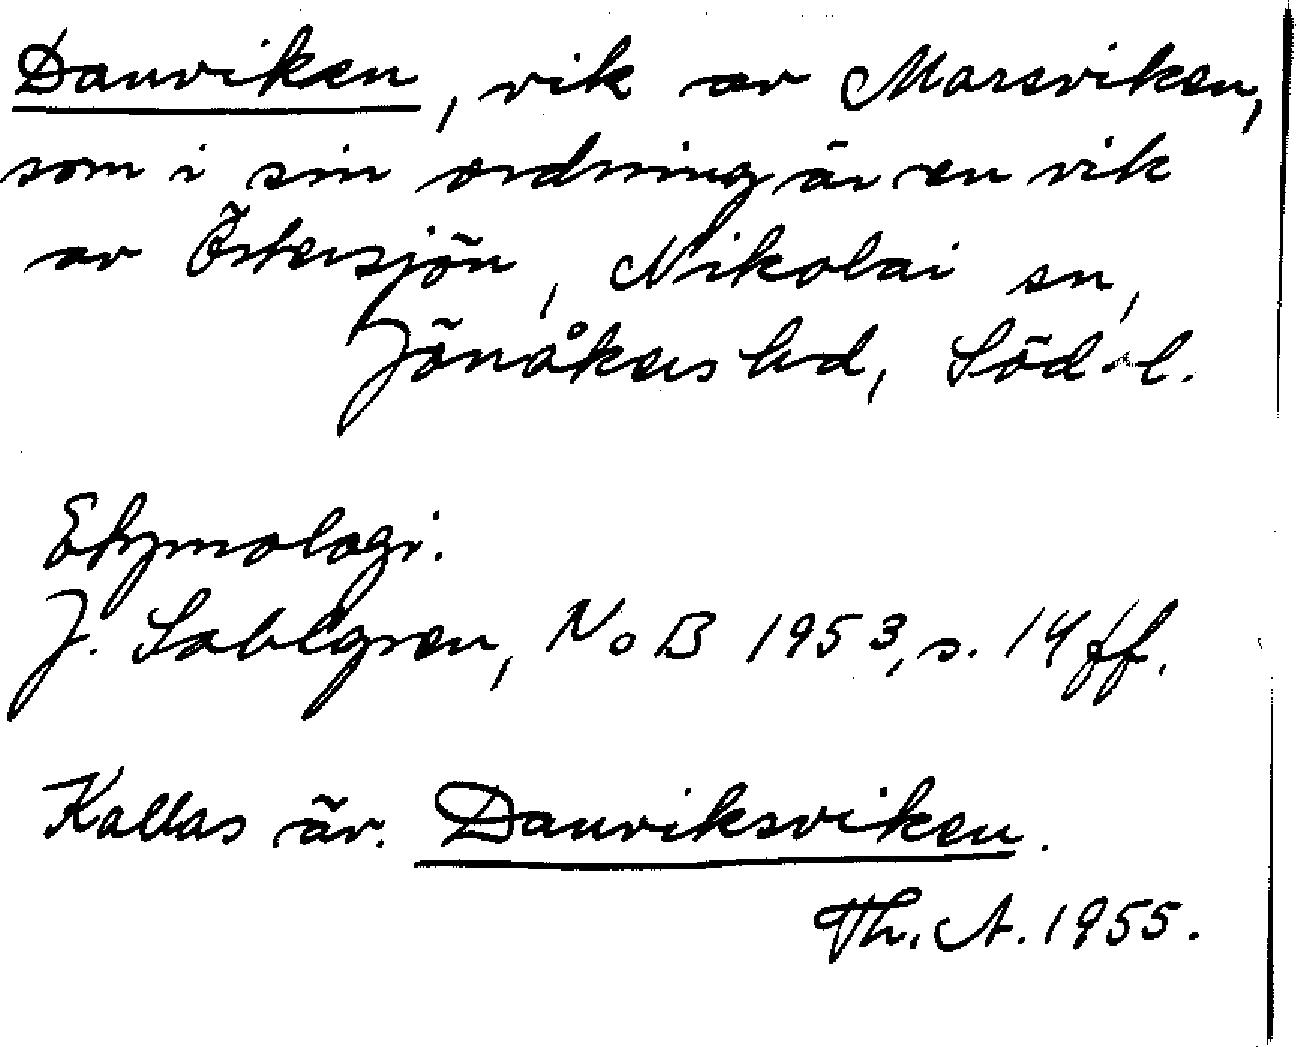 Danviken, vik av Marsviken,
som i sin ordning är en vik
av Östersjön, Nikolai sn,
Jönåkers hd, Söd.l.
Etymologi.
J. Sahlgren, NoB 1953, s. 14 ff.
Kallas äv. Danviksviken.
Th. A. 1955.